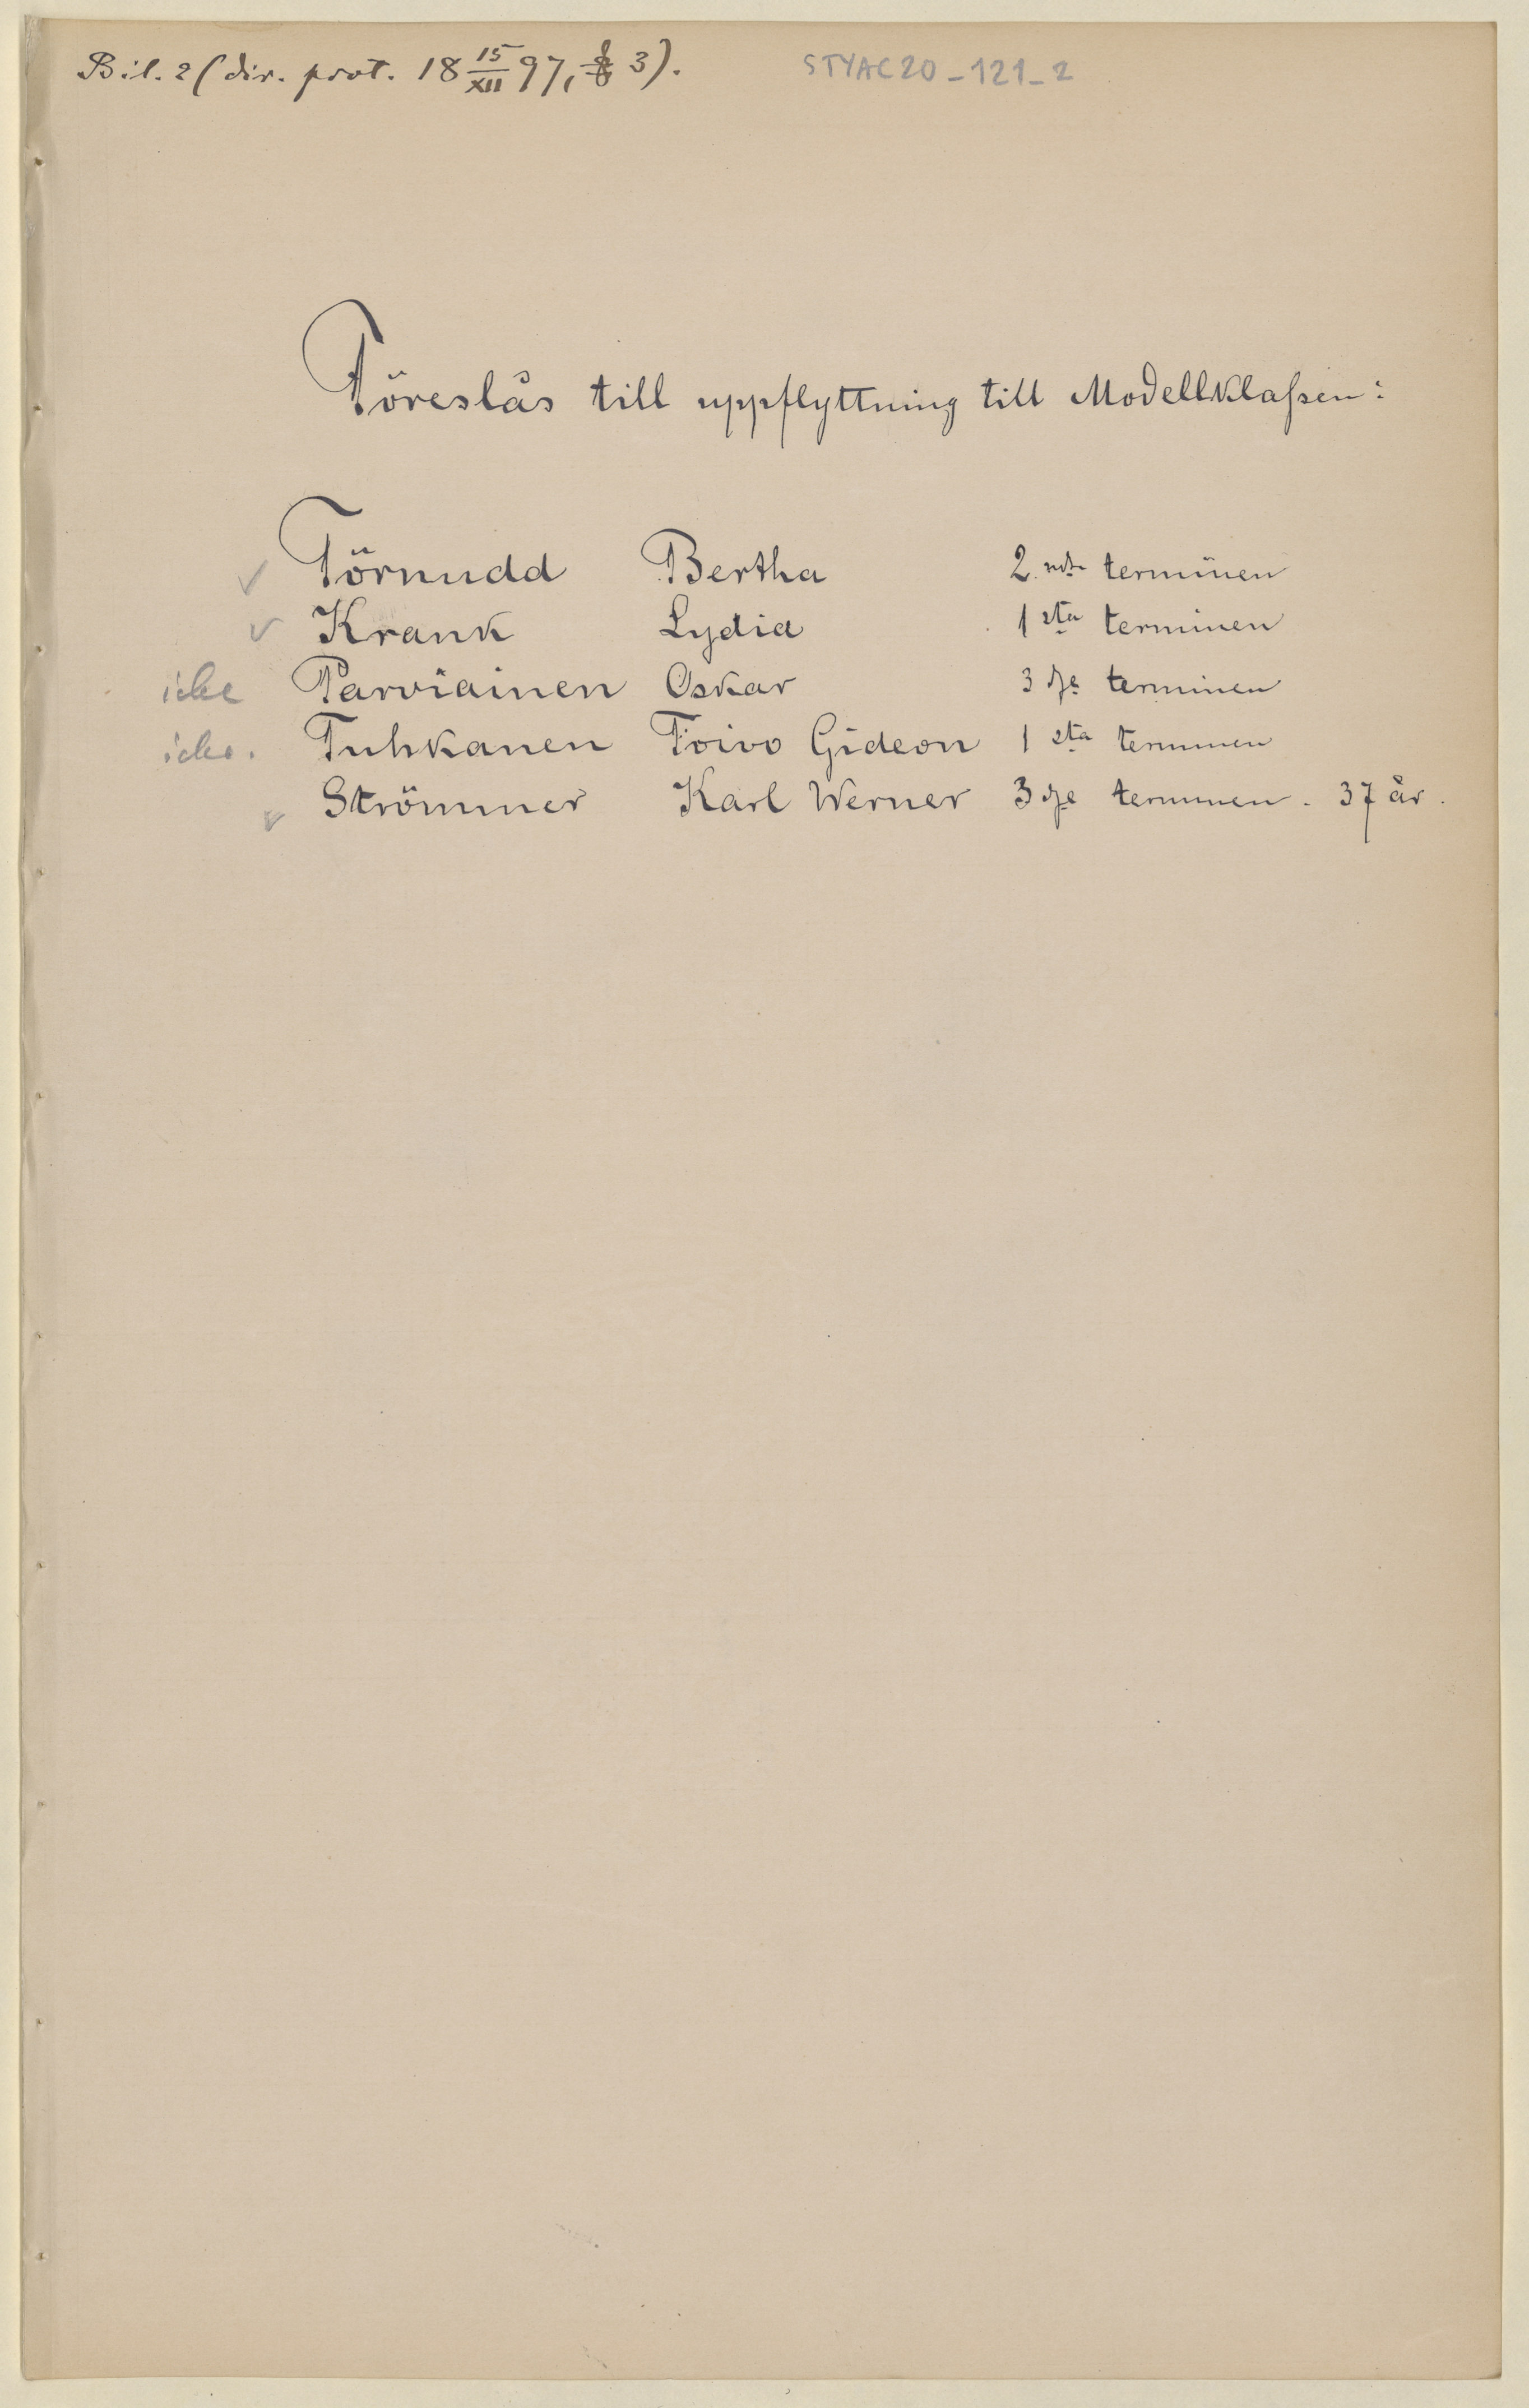 Bil. 2 (dir. prot. 18 15/XII 97, § 3).
STYAC20_121_2
Föreslås till uppflyttning till Modellklassen:
✓ Törnudd Bertha 2 ndr terminen
✓ Krank Lydia 1 sta terminen
icke Parviainen Oskar 3 dje terminen
icke. Tuhkanen Toivo Gideon 1 sta terminen
✓ Strömmer Karl Werner 3 dje terminen. 37 år.